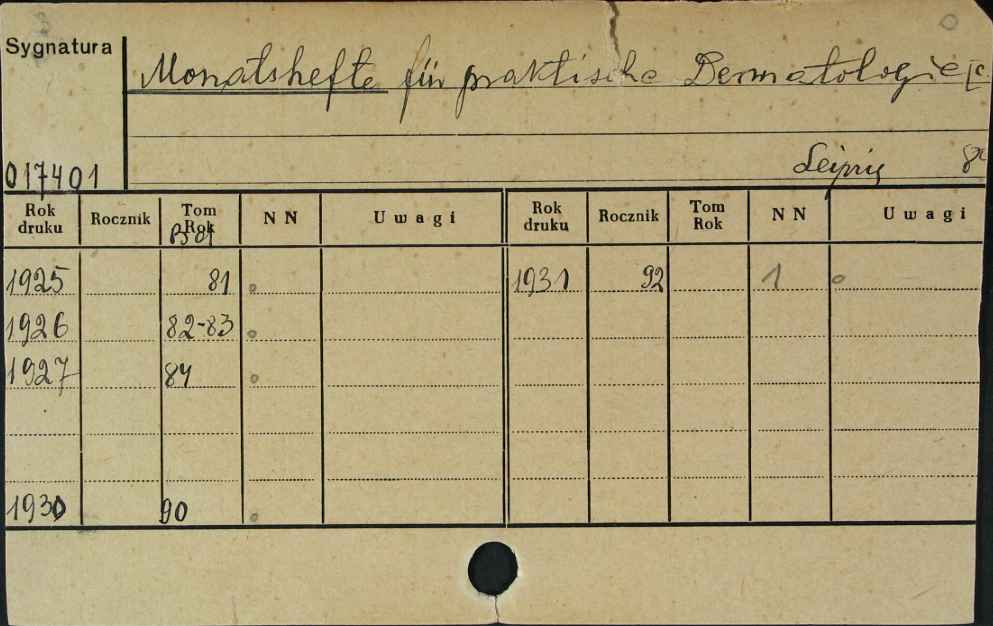 Sygnatura
Monatshefte für praktische Dermatologie [c
017401
Leipzig 8°
Rok druku Rocznik Tom Rok NN Uwagi Rok druku Rocznik Tom Rok NN Uwagi
1925 81 1931 92 1
1926 82-83
1927 84
1930 90